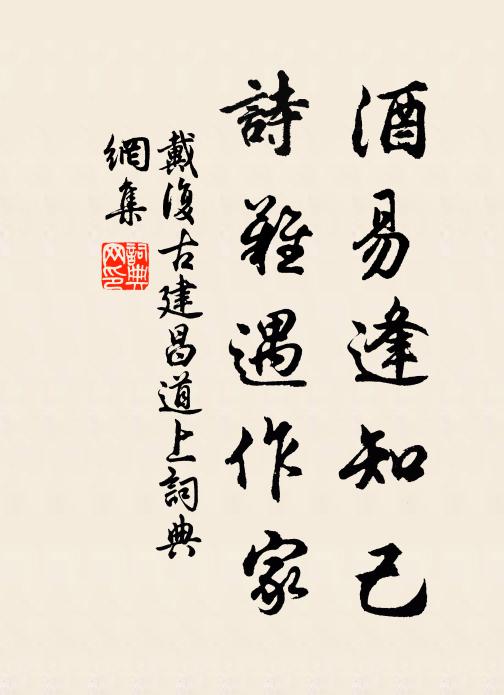 酒易逢知己
詩難遇作家
戴復古建昌道上詞典
網集
詞典網印